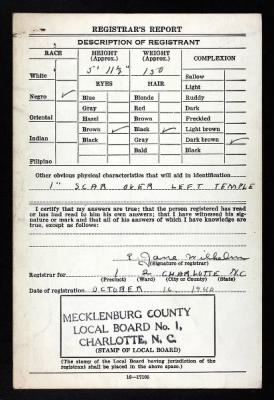 REGISTRAR'S REPORT
DESCRIPTION OF REGISTRANT
RACE HEIGHT (Approx.) WEIGHT (Approx.) COMPLEXION
5' 11½" 150
White Sallow
EYES HAIR Light
Negro ✓ Blue Blonde Ruddy
Gray Red Dark
Oriental Hazel Brown Freckled
Brown ✓ Black ✓ Light brown
Indian Black Gray Dark brown ✓
Bald Black
Filipino
Other obvious physical characteristics that will aid in identification
1" SCAR OVER LEFT TEMPLE
I certify that my answers are true; that the person registered has read
or has had read to him his own answers; that I have witnessed his
signature or mark and that all of his answers of which I have knowledge
are true, except as follows:
Jane Wilhelm
(Signature of registrar)
Registrar for 1 2 CHARLOTTE N.C.
(Precinct) (Ward) (City or County) (State)
Date of registration OCTOBER 16 1940
MECKLENBURG COUNTY
LOCAL BOARD No. 1,
CHARLOTTE, N. C.
(STAMP OF LOCAL BOARD)
(The stamp of the Local Board having jurisdiction of the
registrant shall be placed in the above space.)
16-17105